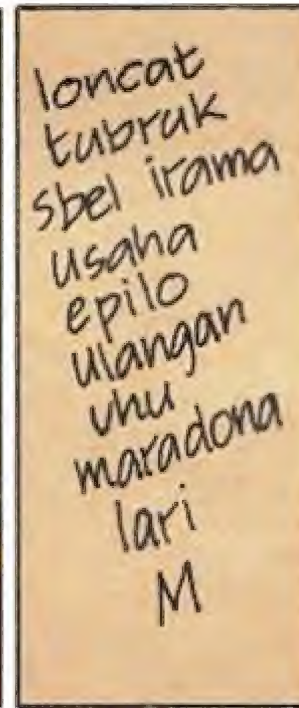 loncat
tubruk
sbel irama
usaha
epilo
ulangan
uhu
maradona
lari
M